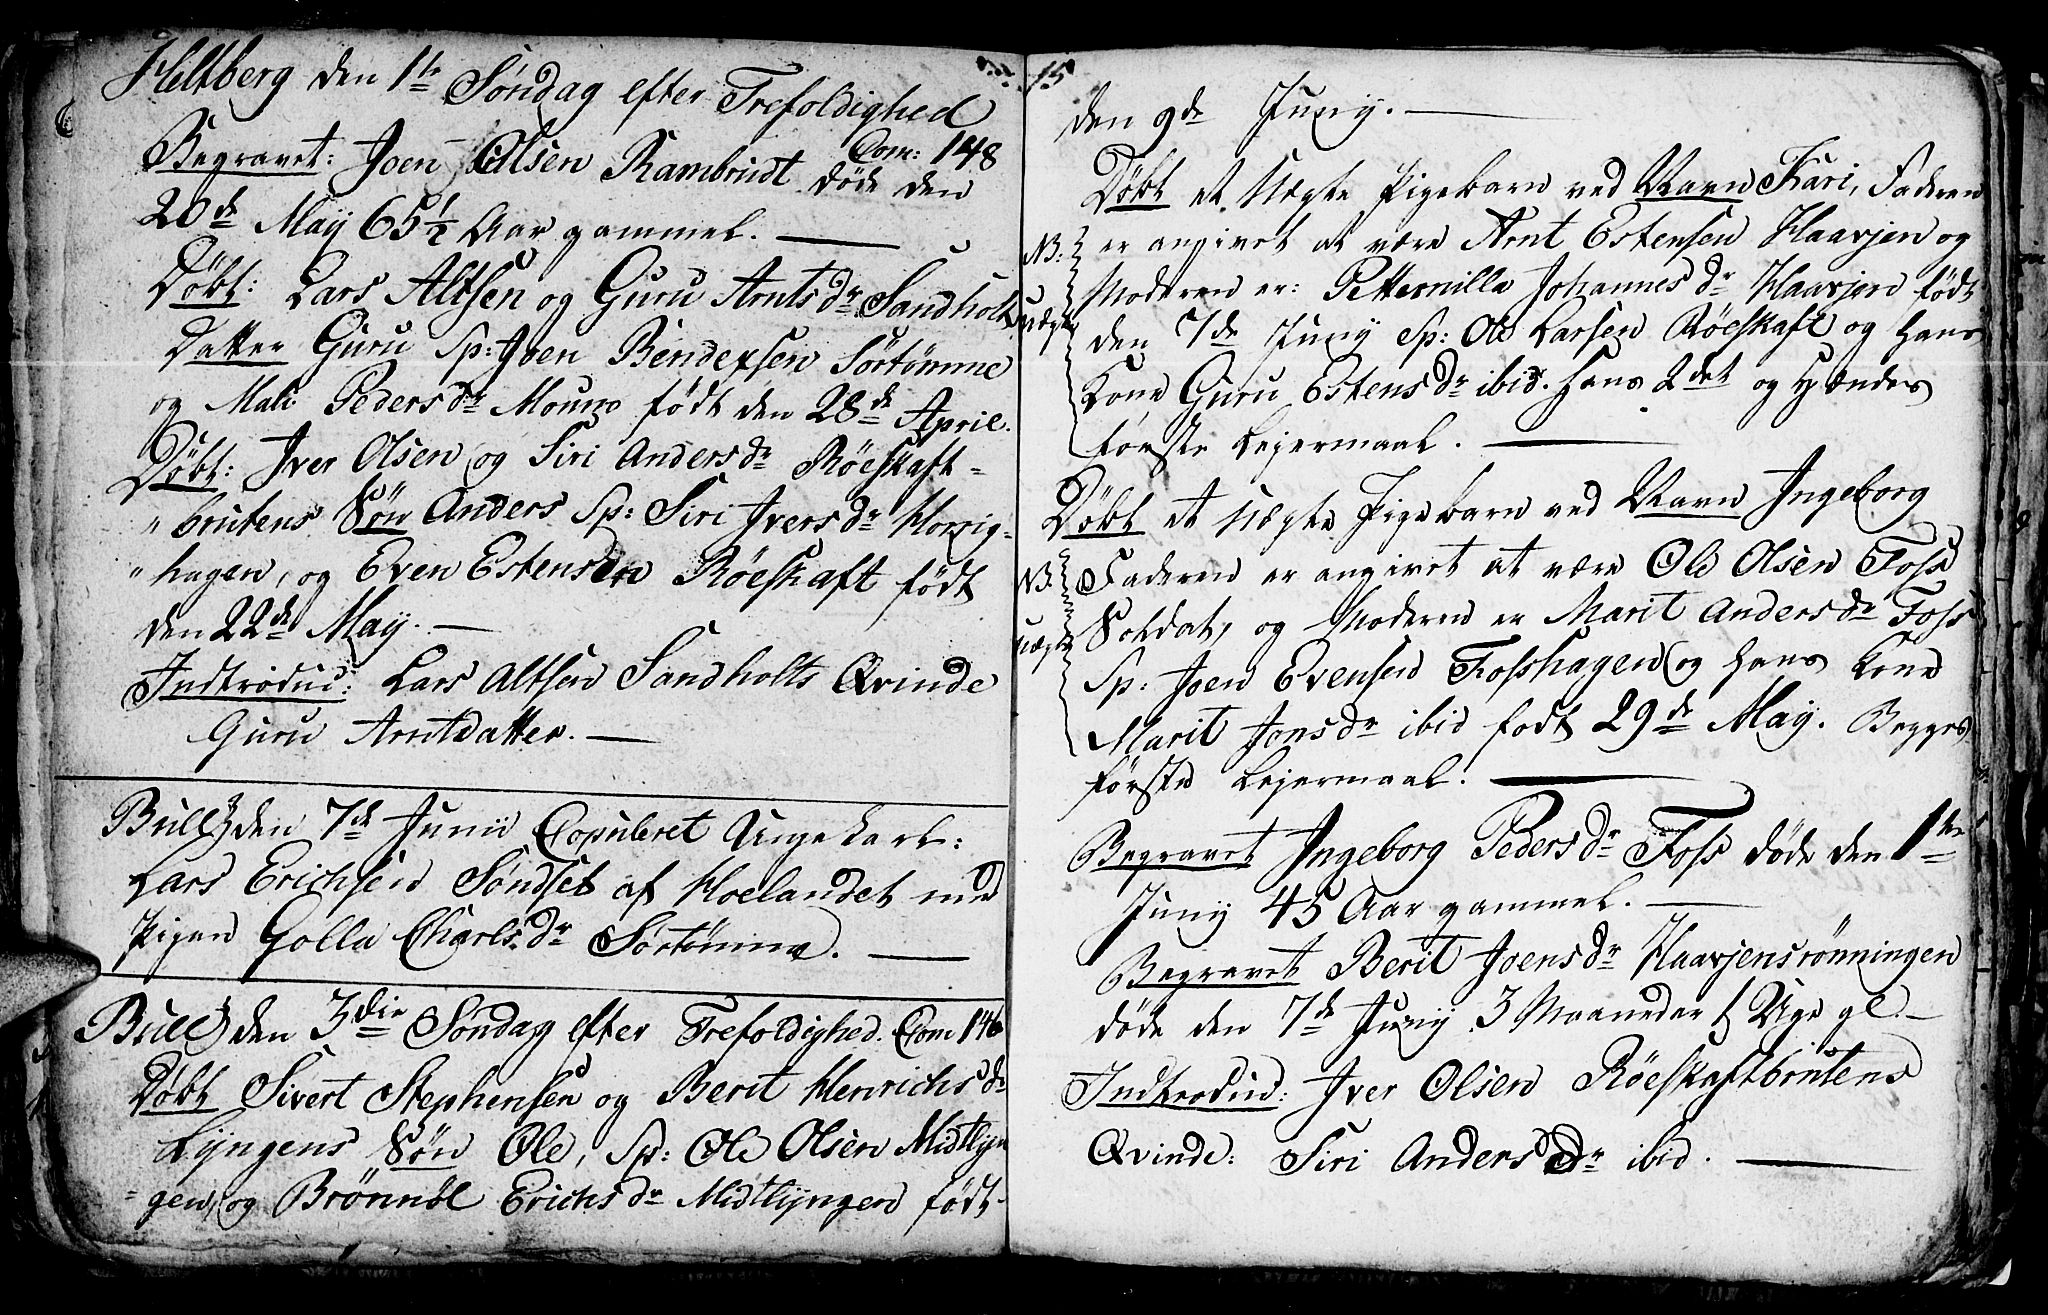 Heltberg den 1te Søndag efter Trefoldighed
Com: 148
Begravet: Joen Olsen Rambrudt døde den
20de Maÿ 65 1/2 Aar gammel. —
Døbt: Lars Altsen og Guru Arntsdr Sandholts
Datter Guru Sp: Joen Bendexsen Sørtømme
og Mali Pedersdr Moune født den 28de April.
Døbt: Iver Olsen og Siri Andersdr Røeskaft-
brutens Søn Anders Sp: Siri Iversdr Horrig-
hagen, og Even Estensen Røeskaft født
den 22de Maÿ. —
Indtroduc: Lars Altsen Sandholts Qvinde
Guru Arntdatter. —
Bull den 7de Junii Copuleret Unge Karl:
Lars Erichsen Søndset af Hoelandet med
Pigen Golla Charlsdr Sørtømme. —
Bull den 3die Søndag efter Trefoldighed. Com 146
Døbt Sivert Stephensen og Berit Henrichsdr
Lÿngens Søn Ole, Sp: Ole Olsen Midtlÿn-
gen, og Brønnøl Erichsdr Midtlÿngen født
15
den 9de Junÿ. —
Døbt et Uægte Pigebarn ved Navn Kari, Faderen
NB: er angivet at være Arnt Estensen Haavjen og
Moderen er: Petternilla Johannesdr Haavjen født
uægte den 7de Junÿ Sp: Ole Larsen Røeskaft og hans
Kone Guru Estensdr ibid. hans 2det og Hændes
første Lejermaal. —
Døbt et Uægte Pigebarn ved Navn Ingeborg
NB Faderen er angivet at være Ole Olsen Foss
Soldat, og Moderen er Marit Andersdr Foss
uægte Sp: Joen Evensen Fosshagen og hans Kone
Marit Jonsdr ibid født 29de Maÿ. Begges
første Lejermaal. —
Begravet Ingeborg Pedersdr Foss døde den 1te
Junÿ 45 Aar gammel. —
Begravet Berit Joensdr Haavjensrønningen
døde den 7de Junÿ 3 Maaneder 1 Uge gl. —
Indtroduc: Iver Olsen Røeskaftbrutens
Qvinde: Siri Andersdr ibid. —